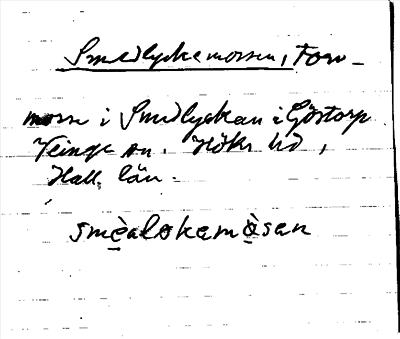 Smedlyckemossen, Torv-
mosse i Smedlyckan i Göstorp
Veinge sn. Höks hd,
Hall. län.
smèalokamòsan